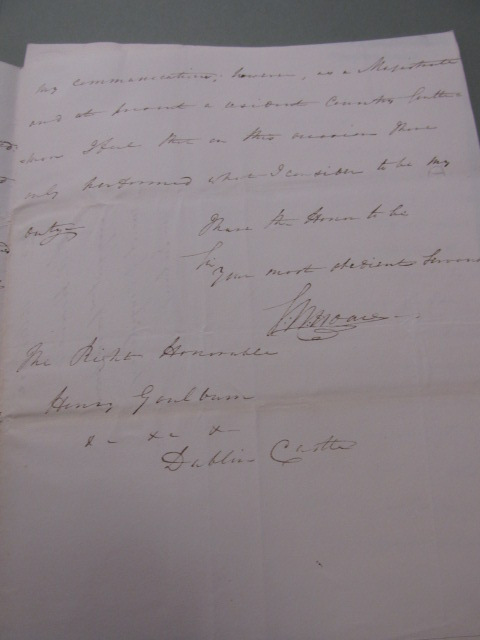 my communication; however, as a Magistrate
and at present a resident Country Gentle
man I feel that on this occasion I have
only performed what I consider to be my
duty
I have the Honor to be
Sir
Your most obedient Servant
The Right Honorable
Henry Goulburn
&c &c &c
Dublin Castle